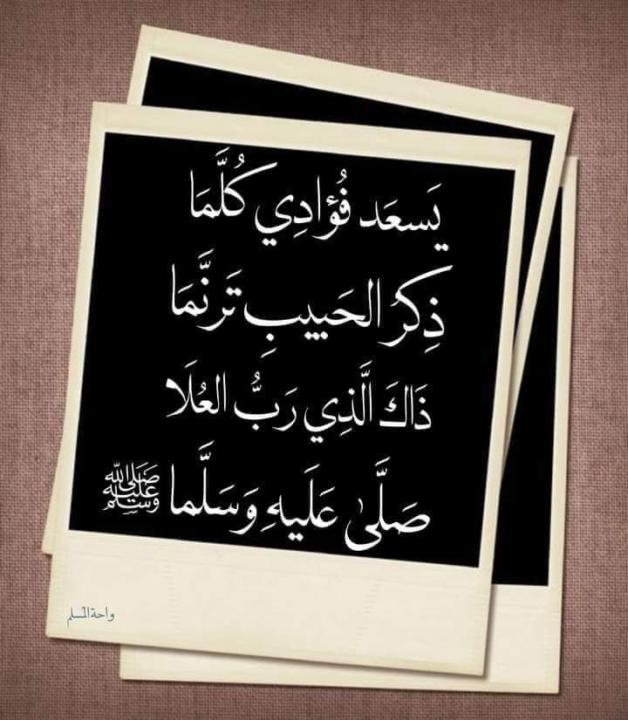 يَسعَد فُؤادِي كُلَّمَا
ذِكرُ الحَبِيبِ تَرنَّمَا
ذَاكَ الَّذِي رَبُّ العُلَا
صَلَّىٰ عَلَيهِ وَسَلَّما ﷺ
واحة المسلم